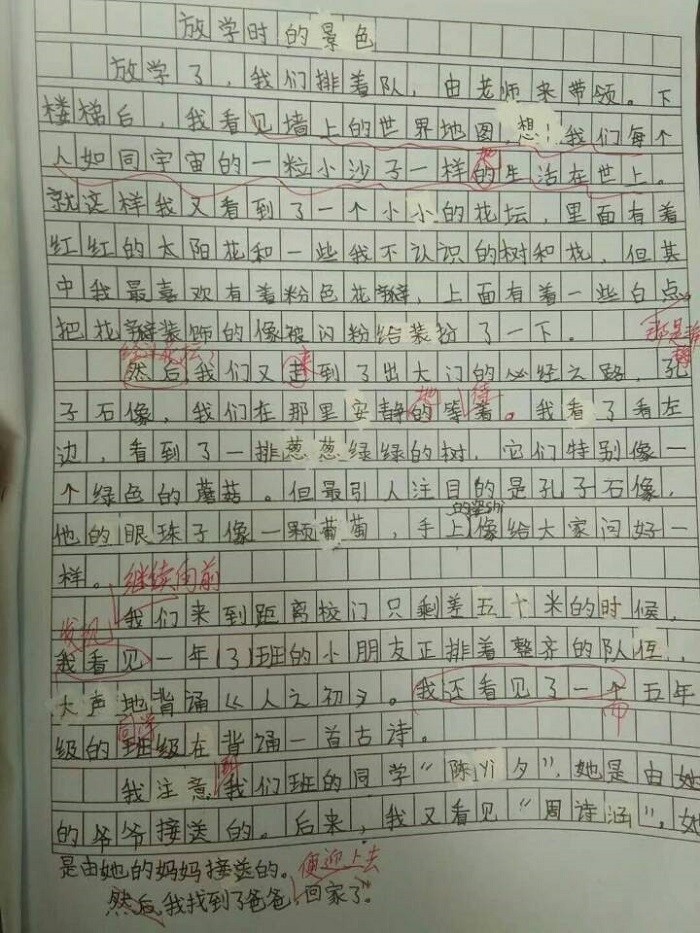 放学时的景色
放学了，我们排着队，由老师来带领。下
楼梯后，我看见墙上的世界地图，想：我们每个
人如同宇宙的一粒小沙子一样的生活在世上。
地
就这样我又看到了一个小小的花坛，里面有着
红红的太阳花和一些我不认识的树和花，但其
中我最喜欢有着粉色花瓣，上面有着一些白点
把花瓣装饰的像被闪粉给装扮了一下。
经过花坛
那是
然后我们又走到了出大门的必经之路，孔
来
地
待
子石像，我们在那里安静的等着。我看了看左
边，看到了一排葱葱绿绿的树，它们特别像一
个绿色的蘑菇。但最引人注目的是孔子石像，
的姿shi
他的眼珠子像一颗葡萄，手上像给大家问好一
样。
继续向前
我们来到距离校门只剩差五十米的时候，
发现
我看见一年(3)班的小朋友正排着整齐的队伍，
大声地背诵《人之初》。我还看见了一个五年
级的班级在背诵一首古诗。
同学
我注意我们班的同学“陈yi夕”，她是由她
到
的爷爷接送的。后来，我又看见“周诗涵”，她
是由她的妈妈接送的。
便迎上去
然后我找到了爸爸，回家了。